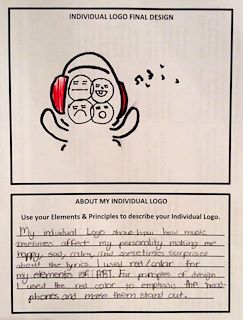 INDIVIDUAL LOGO FINAL DESIGN
ABOUT MY INDIVIDUAL LOGO
Use your Elements & Principles to describe your Individual Logo.
My individual Logo shows how music
sometimes affect my personality making me
happy, sad, calm, and sometimes surprised
about the lyrics. I used red/color for
my elements of ART. For principles of design
I used the red color to emphasis the head-
phones and make them stand out.